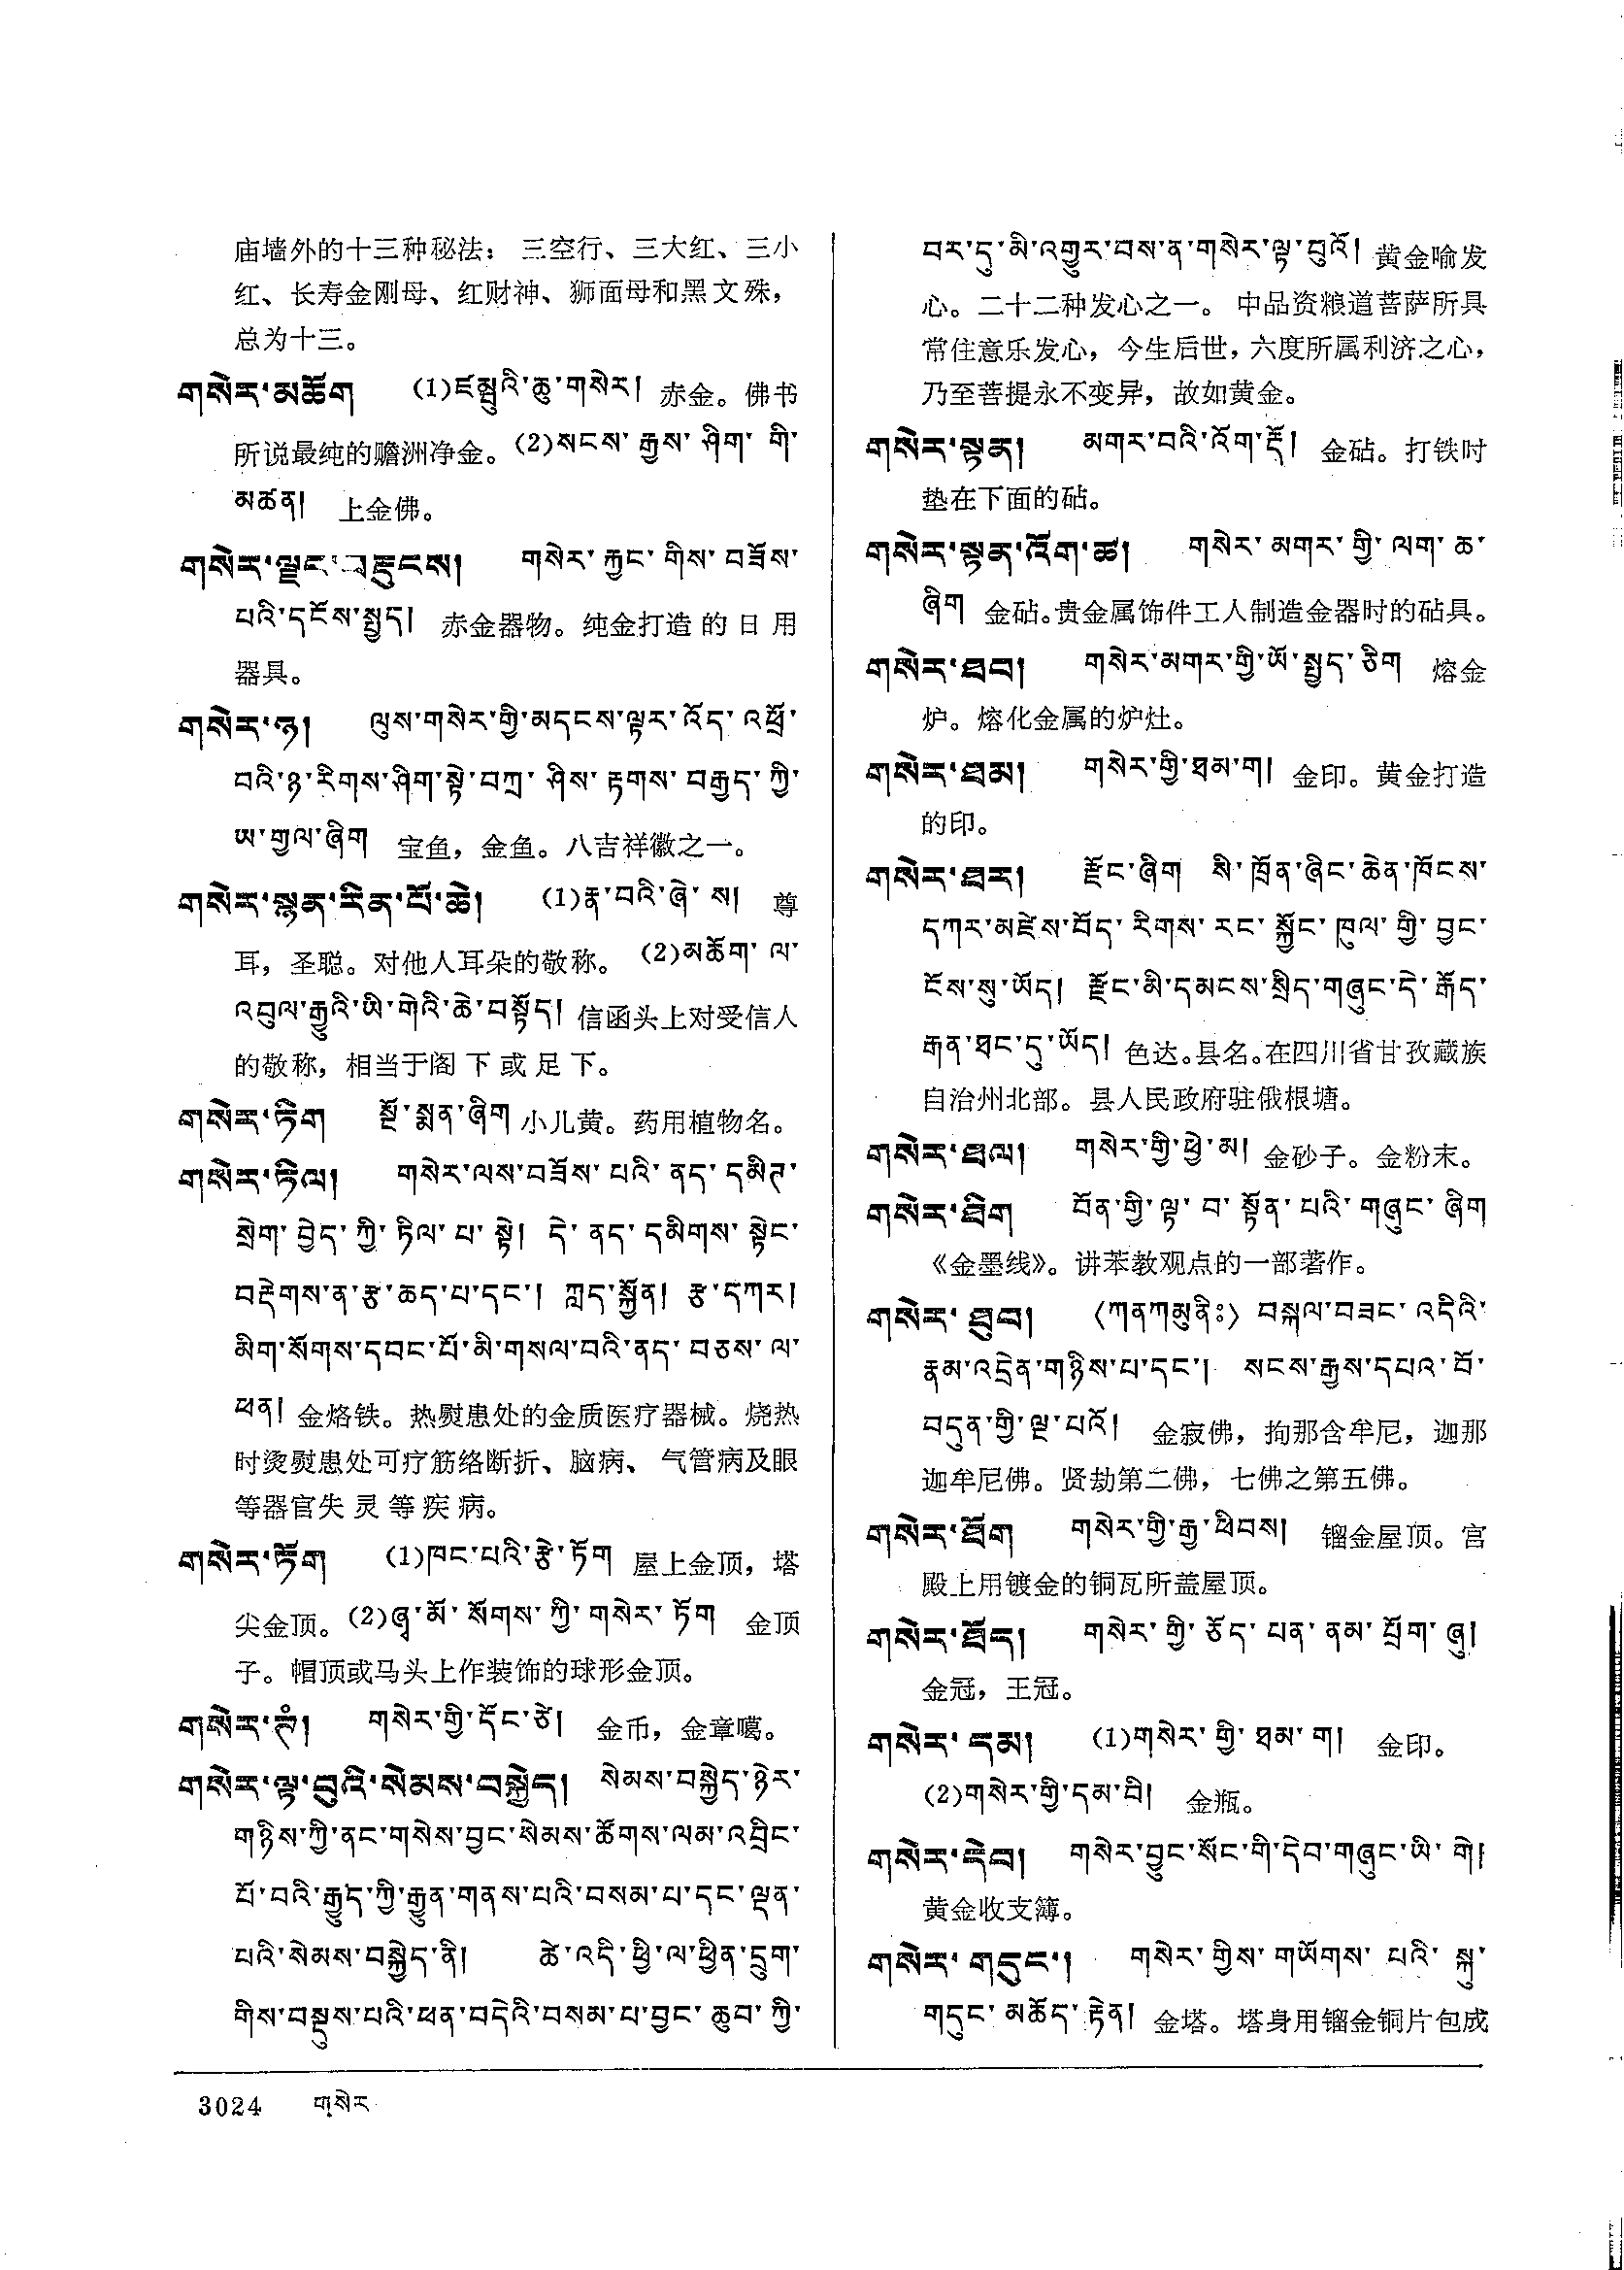 庙墙外的十三种秘法： 三空行、三大红、三小
红、长寿金刚母、红财神、狮面母和黑文殊，
总为十三。
གསེར་མཆོག (1)ཛམྦུའི་ཆུ་གསེར། 赤金。佛书
所说最纯的赡洲净金。(2)སངས་རྒྱས་ཤིག་གི་
མཚན། 上金佛。
གསེར་ལྗང་བརྡུངས། གསེར་རྐྱང་གིས་བཟོས་
པའི་དངོས་སྤྱད། 赤金器物。纯金打造的日用
器具。
གསེར་ཉ། ལུས་གསེར་གྱི་མདངས་ལྟར་འོད་འཕྲོ་
བའི་ཉ་རིགས་ཤིག་སྟེ་བཀྲ་ཤིས་རྟགས་བརྒྱད་ཀྱི་
ཡ་གྱལ་ཞིག 宝鱼，金鱼。八吉祥徽之一。
གསེར་སྙན་རིན་པོ་ཆེ། (1)རྣ་བའི་ཞེ་ས། 尊
耳，圣聪。对他人耳朵的敬称。(2)མཆོག་ལ་
འབུལ་རྒྱུའི་ཡི་གེའི་ཆེ་བསྟོད། 信函头上对受信人
的敬称，相当于阁下或足下。
གསེར་ཏིག སྔོ་སྨན་ཞིག 小儿黄。药用植物名。
གསེར་ཏིལ། གསེར་ལས་བཟོས་པའི་ནད་དམིཊ་
སྲེག་བྱེད་ཀྱི་ཏིལ་པ་སྟེ། དེ་ནད་དམིགས་སྟེང་
བརྡེགས་ན་རྩ་ཆད་པ་དང་། ཀླད་སྐྱོན། རྩ་དཀར།
མིག་སོགས་དབང་པོ་མི་གསལ་བའི་ནད་བཅས་ལ་
ཕན། 金烙铁。热熨患处的金质医疗器械。烧热
时烫熨患处可疗筋络断折、脑病、气管病及眼
等器官失灵等疾病。
གསེར་ཏོག (1)ཁང་པའི་རྩེ་ཏོག 屋上金顶，塔
尖金顶。(2)ཞྭ་མོ་སོགས་ཀྱི་གསེར་ཏོག 金顶
子。帽顶或马头上作装饰的球形金顶。
གསེར་ཊཾ། གསེར་གྱི་དོང་ཙེ། 金币，金章噶。
གསེར་ལྟ་བུའི་སེམས་བསྐྱེད། སེམས་བསྐྱེད་ཉེར་
གཉིས་ཀྱི་ནང་གསེས་བྱང་སེམས་ཚོགས་ལམ་འབྲིང་
པོ་བའི་རྒྱུད་ཀྱི་རྒྱུན་གནས་པའི་བསམ་པ་དང་ལྡན་
པའི་སེམས་བསྐྱེད་ནི། ཚེ་འདི་ཕྱི་ལ་ཕྱིན་དྲུག་
གིས་བསྡུས་པའི་ཕན་བདེའི་བསམ་པ་བྱང་ཆུབ་ཀྱི་
བར་དུ་མི་འགྱུར་བས་ན་གསེར་ལྟ་བུའོ། 黄金喻发
心。二十二种发心之一。 中品资粮道菩萨所具
常住意乐发心，今生后世，六度所属利济之心，
乃至菩提永不变异，故如黄金。
གསེར་སྟན། མགར་བའི་འོག་རྡོ། 金砧。打铁时
垫在下面的砧。
གསེར་སྟན་འོག་ཚ། གསེར་མགར་གྱི་ལག་ཆ་
ཞིག 金砧。贵金属饰件工人制造金器时的砧具。
གསེར་ཐབ། གསེར་མགར་གྱི་ཡོ་སྤྱད་ཅིག 熔金
炉。熔化金属的炉灶。
གསེར་ཐམ། གསེར་གྱི་ཐམ་ག། 金印。黄金打造
的印。
གསེར་ཐར། རྫོང་ཞིག སི་ཁྲོན་ཞིང་ཆེན་ཁོངས་
དཀར་མཛེས་བོད་རིགས་རང་སྐྱོང་ཁུལ་གྱི་བྱང་
ངོས་སུ་ཡོད། རྫོང་མི་དམངས་སྲིད་གཞུང་དེ་རྒོད་
རྒན་ཐང་དུ་ཡོད། 色达。县名。在四川省甘孜藏族
自治州北部。县人民政府驻俄根塘。
གསེར་ཐལ། གསེར་གྱི་ཕྱེ་མ། 金砂子。金粉末。
གསེར་ཐིག བོན་གྱི་ལྟ་བ་སྟོན་པའི་གཞུང་ཞིག
《金墨线》。讲苯教观点的一部著作。
གསེར་ཐུབ། 〈ཀནཀམུནིཿ〉བསྐལ་བཟང་འདིའི་
རྣམ་འདྲེན་གཉིས་པ་དང་། སངས་རྒྱས་དཔའ་བོ་
བདུན་གྱི་ལྔ་པའོ། 金寂佛，拘那含牟尼，迦那
迦牟尼佛。贤劫第二佛，七佛之第五佛。
གསེར་ཐོག གསེར་གྱི་རྒྱ་ཕིབས། 镏金屋顶。宫
殿上用镀金的铜瓦所盖屋顶。
གསེར་ཐོད། གསེར་གྱི་ཅོད་པན་ནམ་པྲོག་ཞུ།
金冠，王冠。
གསེར་དམ། (1)གསེར་གྱི་ཐམ་ག། 金印。
(2)གསེར་གྱི་དམ་བི། 金瓶。
གསེར་དེབ། གསེར་བྱུང་སོང་གི་དེབ་གཞུང་ཡི་གེ།
黄金收支簿。
གསེར་གདུང་། གསེར་གྱིས་གཡོགས་པའི་སྐུ་
གདུང་མཆོད་རྟེན། 金塔。塔身用镏金铜片包成
3024 གསེར